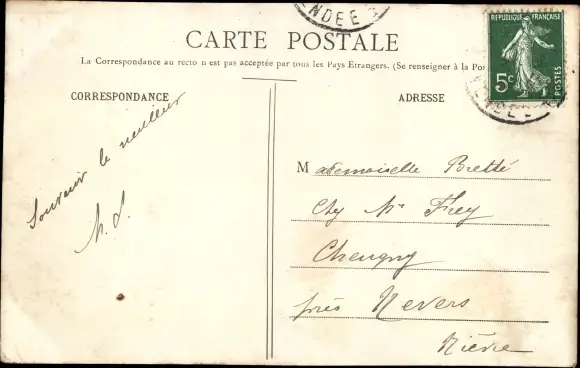 NDEE
CARTE POSTALE
La Correspondance au recto n est pas acceptée par tous les Pays Étrangers. (Se renseigner à la Pos
REPUBLIQUE FRANÇAISE
5c
POSTES
CORRESPONDANCE
ADRESSE
Souvenir le meilleur
Mademoiselle Bretté
Chez Mr Frey
Cheugny
près Nevers
Nièvre